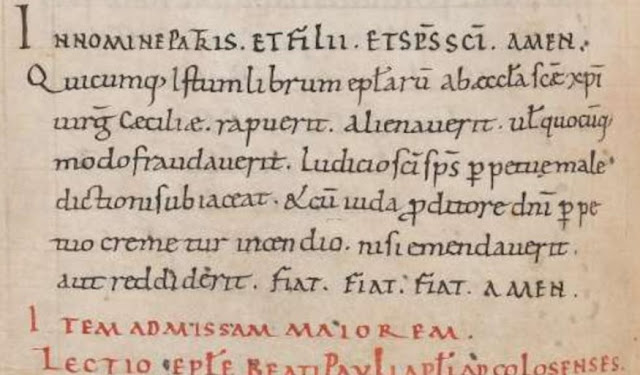 IN NOMINE PATRIS. ET FILII. ET SP̄S SC̄I. AMEN.
Quicumq; Istum librum epłarū ab æccła scæ xp̄i
uirḡ Ceciliæ. rapuerit. alienauerit. uł quocūq;
modo fraudauerit. Iudicio sc̄i sp̄s ꝑpetuę male
dictioni subiaceat. & cū iuda ꝓditore dn̄i ꝑpe
tuo cremetur incendio. nisi emendauerit.
aut reddiderit. FIAT. FIAT. FIAT. AMEN.
ITEM AD MISSAM MAIOREM.
LECTIO EPŁE BEATI PAVLI APŁI AD COLOSENSES.